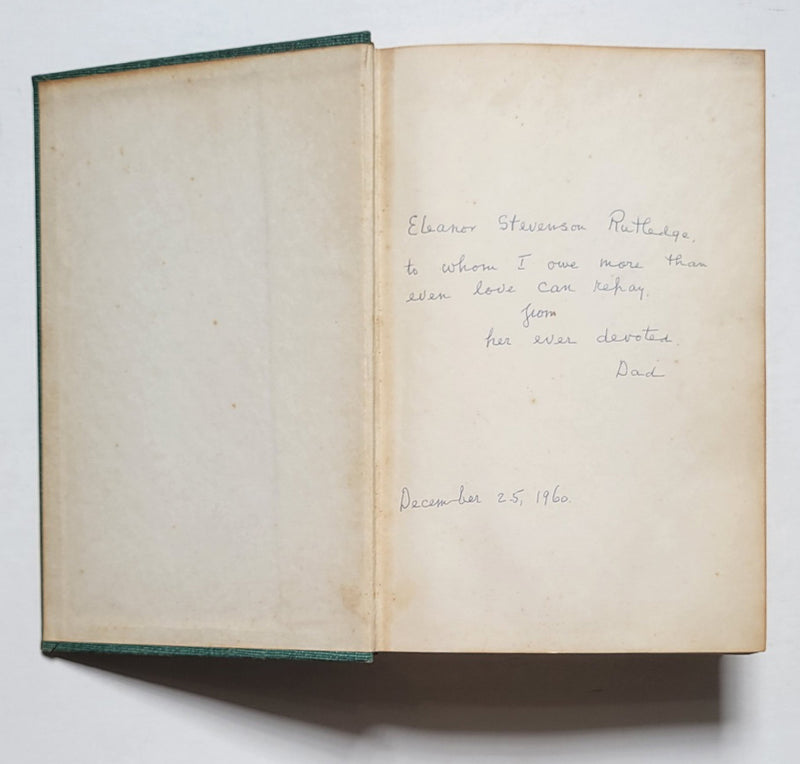 Eleanor Stevenson Rutledge,
to whom I owe more than
even love can repay.
from
her ever devoted.
Dad
December 25, 1960.